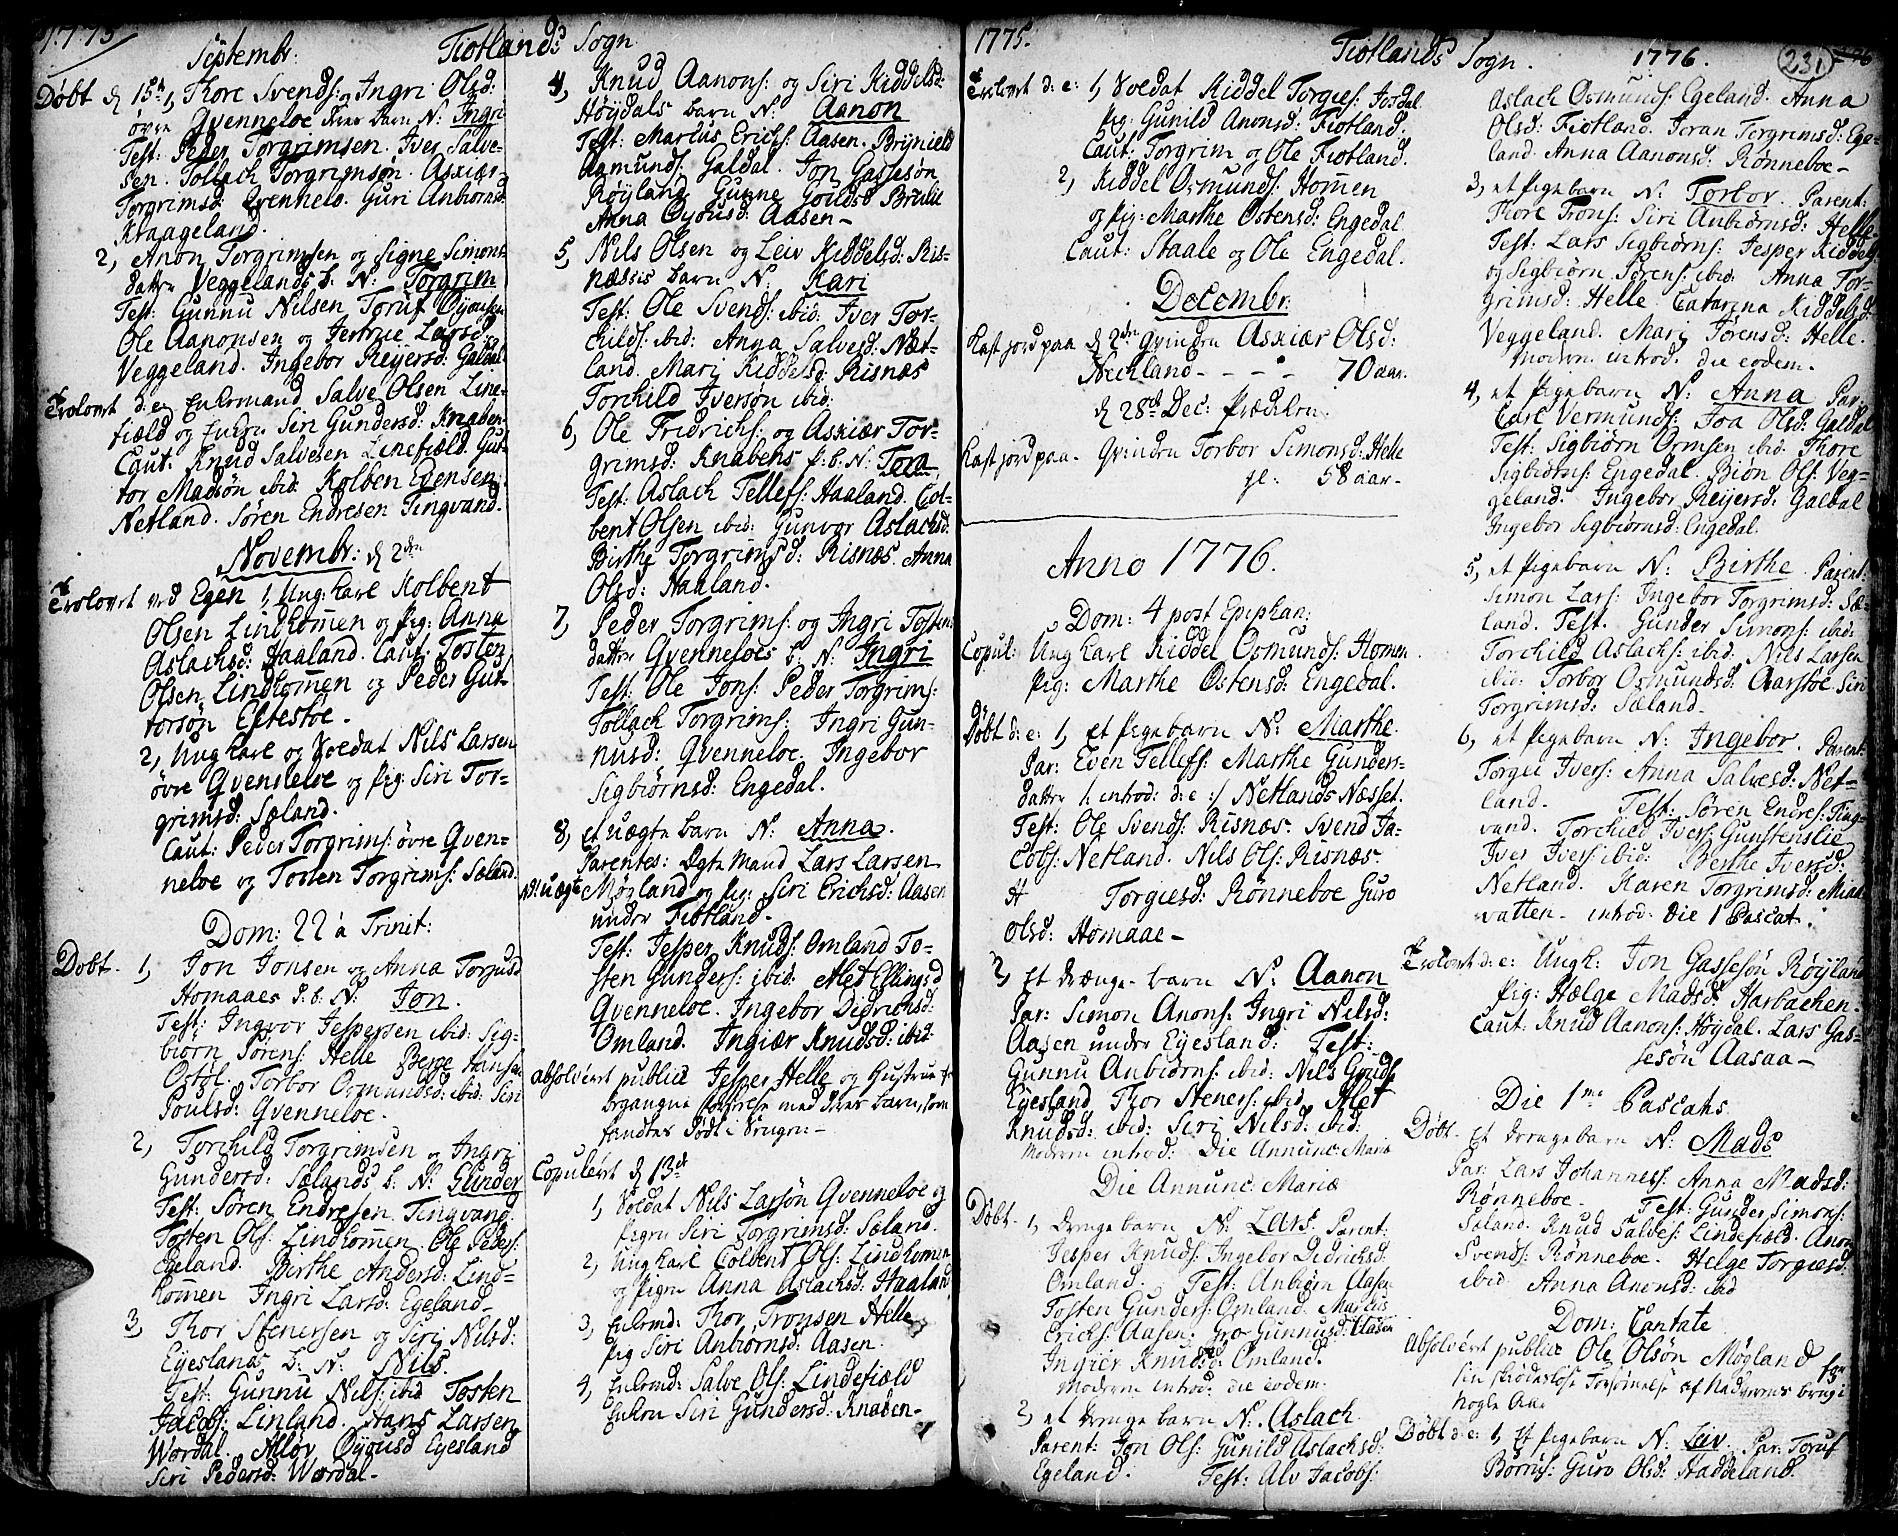 1775
Septembr: Fiotlands Sogn
Døbt d 15de 1, Thore Svends: og Ingri Olsd:
øvre Qvenneloe deres barn N: Ingri
Test: Peder Torgrimsen. Iver Salve-
sen. Tollach Torgrimsøn. Asxiær
Torgrimsd: Qvennelo. Guri Anbiornsd:
Kraageland.
2, Anon Torgrimsen og Signe Simons
datter Veggelands b. N: Torgrim
Test: Gunnu Nilsen, Toruf Øyousen
Ole Aanonsen og Jertrue Larsd:
Veggeland. Ingebor Reyersd: Galdal
Trolovet d: e: Enkemand Salve Olsen Line-
field og Enken Siri Gundersd: Knaben-
Caut: Knud Salvesen Linefield. Gut-
tor Madsøn ibid: Kolben Evensen
Netland. Søren Endresen Tingvand.
Novembr: d 2den
Trolovet ved Egen 1, Ung: karl Kolbent
Olsen Lindhommen og Pig: Anna
Aslachsd: Haaland. Caut: Tosten
Olsen Lindhommen og Peder Gut-
torsøn Eftestøe.
2, Ung karl og Soldat Nils Larsen
øvre Qvenneloe og Pig: Siri Tor-
grimsd: Sæland.
Caut: Peder Torgrims: øvre Qven-
neloe og Tosten Torgrims: Sæland.
Dom: 22 a Trinit:
Døbt. 1, Jon Jonsen og Anna Torjusd
Homaaes d. b. N: Jon.
Test: Ingvor Jespersen ibid: Sig-
biørn Sørens: Helle Berge Hansen
Ostel. Torbor Osmundsd: ibid: Siri
Poulsd: Qvenneloe.
2, Torchild Torgrimsen og Ingri
Gundersd: Sælands b. N: Gunder
Test: Søren Endresen Tingvand.
Tosten Ols: Lindhommen. Ole Peders:
Egeland. Berthe Andersd: Lind-
hommen Ingri Larsd: Egeland-
3, Thor Stenersen og Siri Nilsd:
Eyeslands b: N: Nils.
Test: Gunnu Nils: ibid Tosten
Jacobs: Linland. Hans Larsen
Wordal. Alløv Øyousd Eyesland
Siri Pedersd: Wordal-
4, Knud Aanons: og Siri Kiddelsd:
Høydals barn N: Aanon
Test: Marcus Erichs: Aasen. Brynield
Aamunds. Galdal. Jon Gassesøn
Røyland Gunne
Anna Øyousd: Aasen-
5, Nils Olsen og Leiv Kiddelsd: Ris-
næssis barn N: Kari
Test: Ole Svends: ibid: Iver Tor-
childs: ibid: Anna Salvesd: Næt-
land. Mari Kiddelsd: Risnæs
Torchild Iversøn ibid:
6, Ole Fridrichs: og Asxiær Tor-
grimsd: Knabens p: b: N: Tora
Test: Aslach Tellefs: Haaland. Col-
bent Olsen ibid: Gunvor Aslachsd:
Birthe Torgrimsd: Risnæs. Anna
Olsd: Haaland.
7, Peder Torgrims: og Ingri Tosten:
datter Qvenneloes b. N: Ingri
Test: Ole Jons: Peder Torgrims:
Tollach Torgrims: Ingri Gun-
nusd: Qvenneloe. Ingebor
Sigbiørnsd: Engedal.
8, et uægte barn N: Anna.
Parentes: Ægte mand Lars Larsen
NB: uægte Møgland og Pig: Siri Erichsd: Aasen
under Fiotland.
Test: Jesper Knuds: Omland To-
sten Gunders: ibid: Alet Ellingsd
Qvenneloe. Ingebor Didrichsd:
Omland. Ingiær Knudsd: ibid
Absolvert publice Jesper Helle og Hustrue for
begangne med deres barn, som
fandtes dødt i Sengen:-
Copulert d 13de
1, Soldat Nils Larsøn Qvenneloe og
Pigen Siri Torgrimsd: Sæland.
2, Ung karl Colbent Ols: Lindhommen
og Pigen Anna Aslachsd: Haaland
3, Enkemd: Thor Tronsen Helle
Pig Siri Anbiornsd: Aasen.
4, Enkemd: Salve Ols: Lindefield
Enken Siri Gundersd: Knaben-
1775. Fiotlands Sogn. 1776. 231
Trolovet d: e: 1, Soldat Kiddel Torgies: Josdal
Pig: Gunild Anonsd: Fiotland.
Caut: Torgrim og Ole Fiotland.
2, Kiddel Osmunds: Homen
og Pig: Marthe Ostensd: Engedal.
Caut: Staale og Ole Engedal.
Decembr:
Kast jord paa d 2den Qvinden Asxiær Olsd:
Neckland - - - 70 aar.
d 28de Dec: Prædiken.
Kast jord paa. Qvinden Torbor Simonsd: Helle
gl. 58 aar-
Anno 1776.
Dom: 4 post Epiphan:
Copul: Ung karl Kiddel Osmunds: Homen
Pig: Marthe Ostensd: Engedal.
Døbt d: e: 1, et Pigebarn N: Marthe.
Par: Even Tellefs: Marthe Gunders-
datter /: introd: d: e :/ Netlands Næsset.
Test: Ole Svends: Risnæs. Svend Ja-
cobs: Netland. Nils Ols: Risnæs.
Torgiesd: Rønneboe Guro
Olsd: Homaae-
2, Et drænge-barn N: Aanon
Par: Simon Anons: Ingri Nilsd:
Aasen under Eyesland: Test:
Gunnu Anbiorns: ibid: Nils
Eyesland Thor Steners: ibid Alet
Knudsd: ibid: Siri Nilsd: ibid:
Moderen introd: Die Annunc: Mariæ
Die Annunc: Mariæ
Døbt. 1, Drengebarn N: Lars. Parent:
Jesper Knuds: Ingebor Didrichsd:
Omland. Test: Anbiorn Aasen
Tosten Gunders: Omland. Marcus
Erichs: Aasen. Gro Gunnusd: Aasen
Ingiær Knudsd: Omland.
Moderen introd: die eodem.
2, et Drengebarn N: Aslach.
Parent: Jon Ols: Gunild Aslachsd:
Egeland. Test: Alv Jacobs:
Aslach Osmunds: Egeland. Anna
Olsd: Fiotland. Joran Torgrimsd: Ege-
land. Anna Aanonsd: Rønneboe-
3, et Pigebarn N: Torbor. Parent:
Thore Trons: Siri Anbiørnsd: Helle.
Test: Lars Sigbiørns: Jesper Kiddels:
og Sigbiørn Sørens: ibid: Anna Tor-
grimsd: Helle Catarina Kiddelsd:
Veggeland. Mari Sørensd: Helle.
Modren introd. die eodem.
4, et Pigebarn N: Anna Par:
Carl Vermunds: Joa Olsd: Galdal
Test: Sigbiørn Ormsen ibid: Thore
Sigbiørns: Engedal. Biøn Ols: Veg-
geland. Ingebor Reyersd: Galdal
Ingebor Sigbiørnsd: Engedal.
5, et Pigebarn N: Birthe. Parent:
Simon Lars: Ingebor Torgrimsd: Sæ-
land. Test. Gunder Simons: ibid:
Torchild Aslachs: ibid: Nils Larsen
ibid: Torbor Osmundsd: Aarstoe. Siri
Torgrimsd: Sæland.
6, et Pigebarn N: Ingebor. Parent:
Torgie Ivers: Anna Salvesd: Net-
land. Test: Søren Endres: Ting-
vand. Torchild Ivers: Gunstenslie
Iver Ivers: ibid: Berthe Iversd:
Netland. Karen Torgrimsd: Mia-
vatten- introd: Die 1 Pascat.
Trolovet d: e: Ungk: Jon Gassesøn Røyland
Pig: Helge Madsd: Harbachen.
Caut: Knud Aanons: Høydal. Lars Gas-
sesøn Aasaa-
Die 1me Pascatis
Døbt. Et drengebarn N: Mads
Par: Lars Johanness: Anna Madsd:
Rønneboe. Test: Gunder Simons:
Sæland. Knud Salves: Lindefield. Anon
Svends: Rønneboe. Helge Torgiesd:
ibid Anna Anonsd: ibid
Dom: Cantate
Absolvert publice Ole Olsøn Møgland for
sin skiødesløse Forsømmelse af Nadverens brug i
nogle Aar
Døbt d: e: 1, Et Pigebarn N: Leiv. Par: Toruf
Børrus: Guro Olsd: Haddeland.